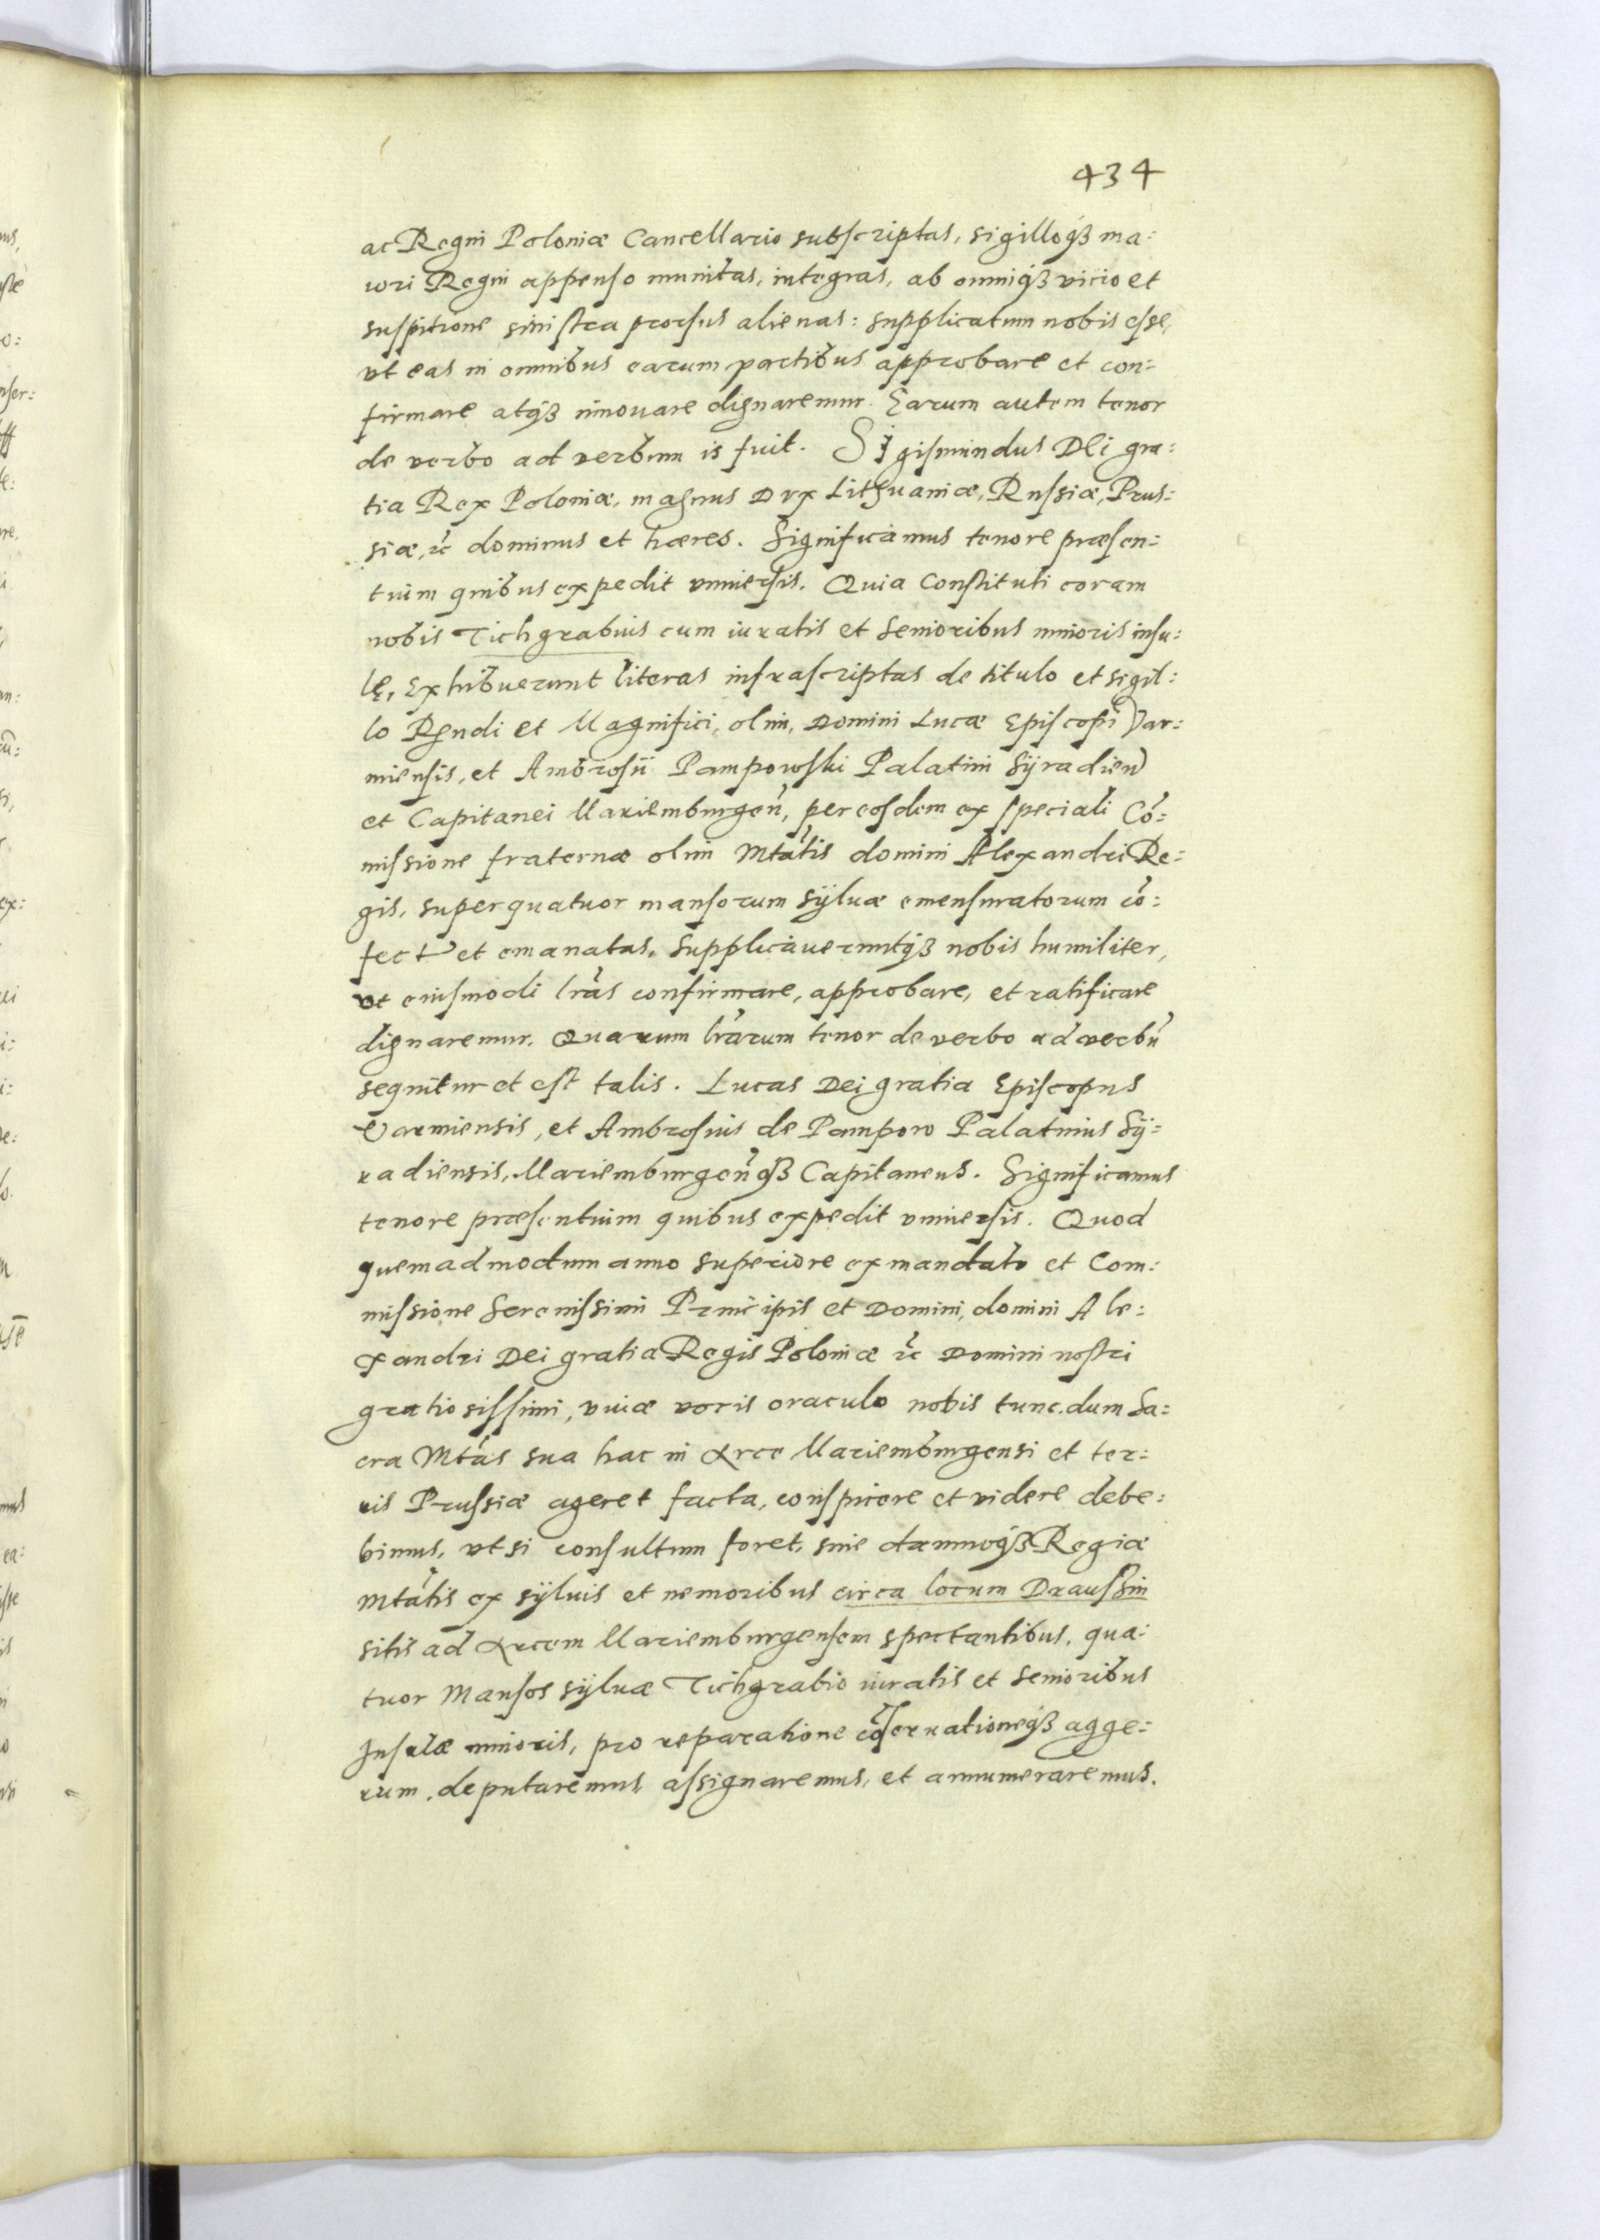 434
ac Regni Poloniæ Cancellario subscriptas, sigilloqȝ ma:
iori Regni appenso munitas, integras, ab omniqȝ vicio et
suspitione sinistra prorsus alienas: supplicatum nobis esse,
vt eas in omnibus earum partibus approbare et con:
firmare atqȝ innouare dignaremur. Earum autem tenor
de verbo ad verbum is fuit. Sigismundus Dei gra:
tia Rex Poloniæ, magnus Dux Lithuaniæ, Russiæ, Prus:
siæ, ꝛc dominus et hæres. Significamus tenore præsen:
tium quibus expedit vniuersis. Quia Constituti coram
nobis Tichgrabius cum iuratis et Senioribus minoris insu:
lę, Exhibuerunt literas infrascriptas de titulo et sigil:
lo Rendi et Magnifici, olim, Domini Lucæ Episcopi Var:
miensis, et Ambrosii Pampowski Palatini Sÿradien
et Capitanei Mariemburgeñ, per eosdem ex speciali Cõ:
missione fraternæ olim Mtãtis domini Alexandri Re:
gis, super quatuor mansorum sÿluæ emensuratorum cõ:
fect et emanatas. Supplicaueruntqȝ nobis humiliter,
vt eiusmodi lrãs confirmare, approbare, et ratificare
dignaremur. Quarum lrãrum tenor de verbo ad verbũ
sequitur et est talis. Lucas Dei gratia Episcopus
Varmiensis, et Ambrosius de Pampow Palatinus Sÿ:
radiensis, Mariemburgeñqȝ Capitaneus. Significamus
tenore præsentium quibus expedit vniuersis. Quod
quemadmodum anno superiore ex mandato et Com:
missione Serenissimi Principis et Domini, domini Ale:
xandri Dei gratia Regis Poloniæ ꝛc Domini nostri
gratiosissimi, viuæ vocis oraculo nobis tunc, dum Sa:
cra Mtãs sua hac in Arce Mariemburgensi et ter:
ris Prussiæ ageret facta, conspicere et videre debe:
bimus, vt si consultum foret, sine damnoqȝ Regiæ
Mtãtis ex sÿluis et nemoribus circa locum Draussin
sitis ad Arcem Mariemburgensem spectantibus, qua:
tuor Mansos sÿluæ Tichgrabio iuratis et Senioribus
Insulæ minoris, pro reparatione cõseruationeqȝ agge:
rum, deputaremus assignaremus, et annumeraremus.